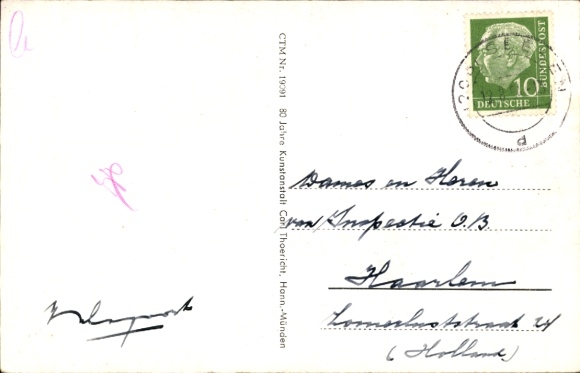 CTM Nr. 19091 80 Jahre Kunstanstalt Carl Thoericht, Hann.-Münden
10
DEUTSCHE
BUNDESPOST
Dames en Heren
van Inspectie O.B.
Haarlem
24
(Holland)